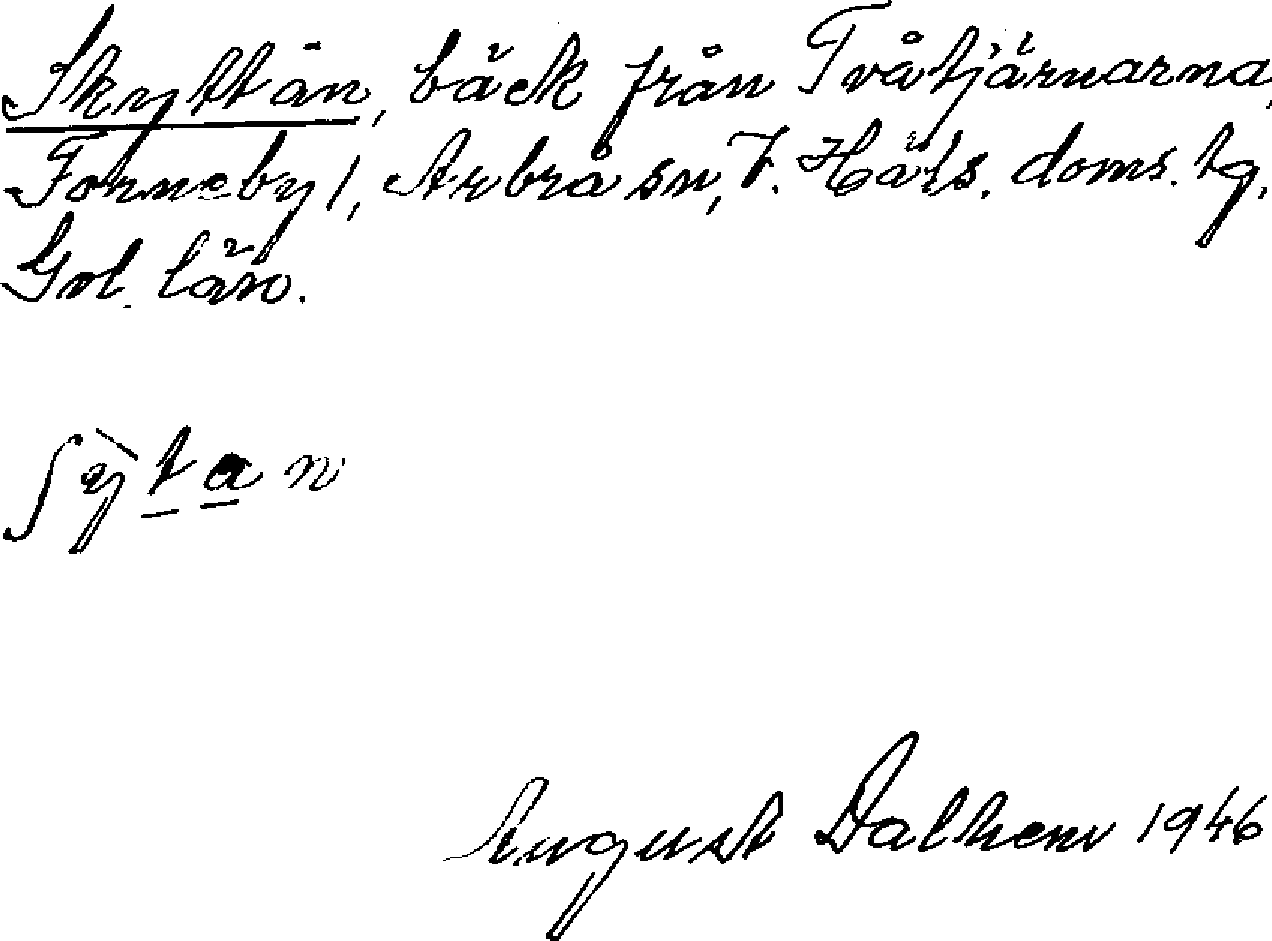 Skyttån, bäck från Tvåtjärnarna,
Forneby 1, Arbrå sn, V. Häls. doms. tg,
Gvl. län.
ʃỳtan
August Dalhem 1946